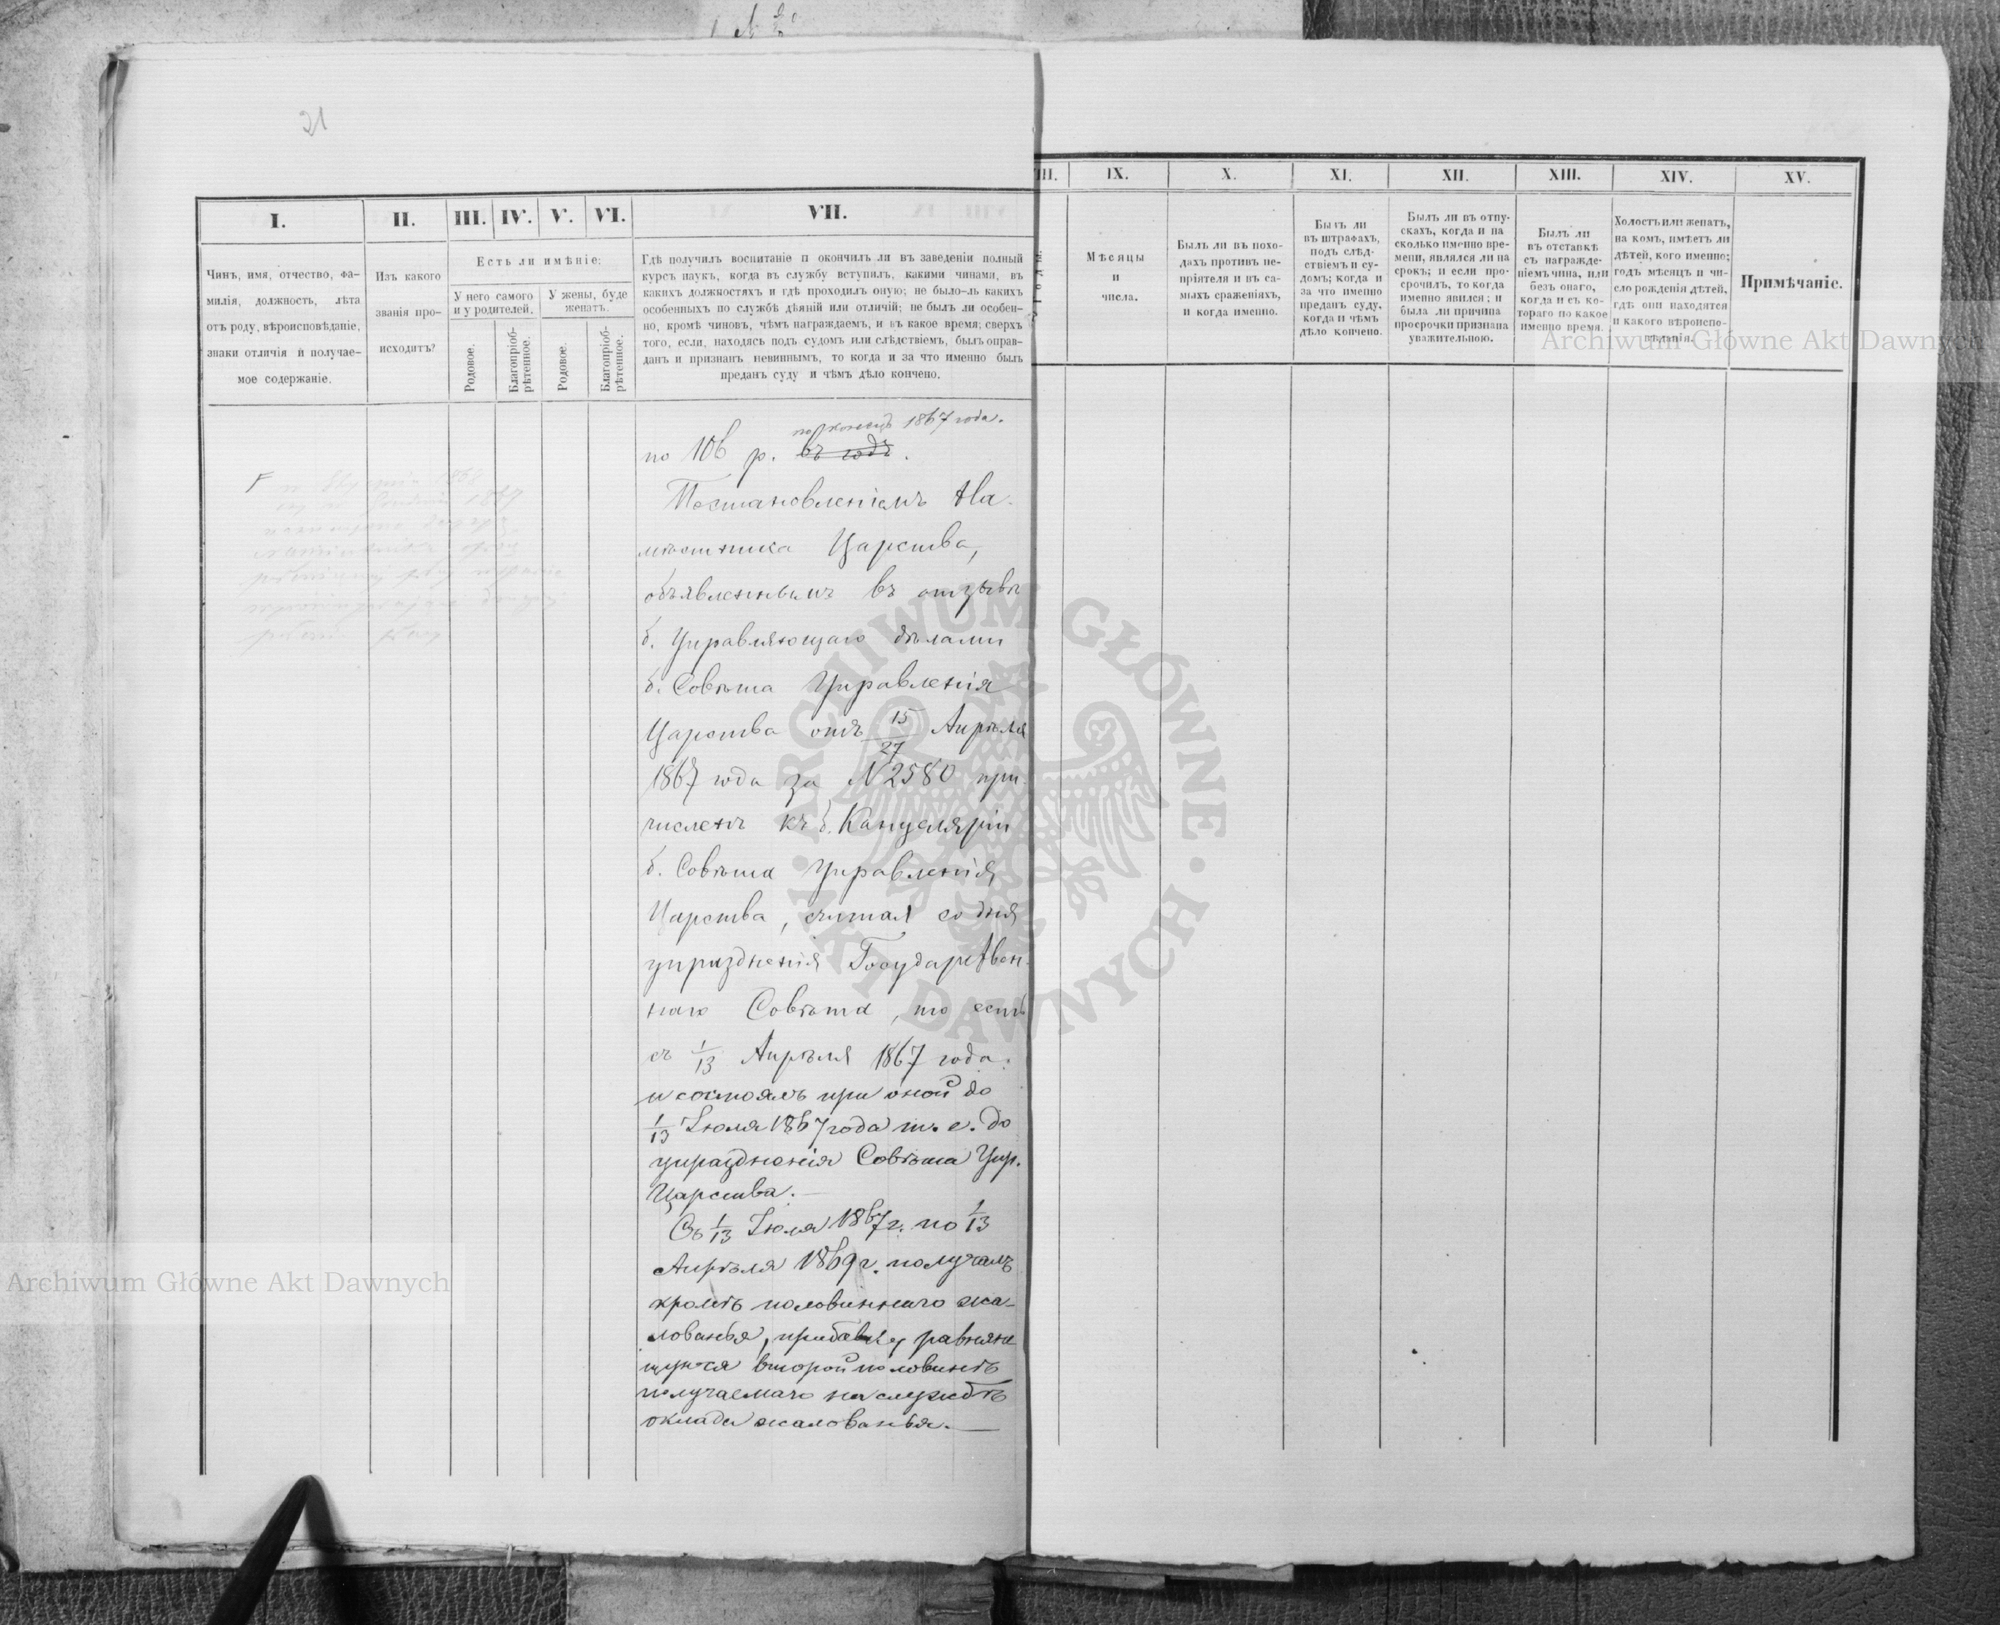 21
I.
II.
III.
IV.
V.
VI.
VII.
Чинъ, имя, отчество, фа-
милія, должность, лѣта
отъ роду, вѣроисповѣданіе,
знаки отличія и получае-
мое содержаніе.
Изъ какого
званія про-
исходитъ?
Есть ли имѣніе:
У него самого
и у родителей.
У жены, буде
женатъ.
Родовое.
Благопріоб-
рѣтенное.
Родовое.
Благопріоб-
рѣтенное.
Гдѣ получилъ воспитаніе и окончилъ ли въ заведеніи полный
курсъ наукъ, когда въ службу вступилъ, какими чинами, въ
какихъ должностяхъ и гдѣ проходилъ оную; не было-ль какихъ
особенныхъ по службѣ дѣяній или отличій; не былъ ли особен-
но, кромѣ чиновъ, чѣмъ награждаемъ, и въ какое время; сверхъ
того, если, находясь подъ судомъ или слѣдствіемъ, былъ оправ-
данъ и признанъ невиннымъ, то когда и за что именно былъ
преданъ суду и чѣмъ дѣло кончено.
по конецъ 1867 года.
по 106 р. въ годъ.
Постановленіемъ На-
мѣстника Царства,
объявленнымъ въ отзывѣ
б. Управляющаго дѣлами
б. Совѣта Управленія
Царства отъ 15/27 Апрѣля
1867 года за N 2580 при-
численъ къ б. Канцеляріи
б. Совѣта Управленія
Царства, считая со дня
упраздненія Государствен-
наго Совѣта, то есть
съ 1/13 Апрѣля 1867 года.
и состоялъ при оной до
1/13 Іюля 1867 года т. е. до
упраздненія Совѣта Упр.
Царства.—
Съ 1/13 Іюля 1867 г. по 1/13
Апрѣля 1869 г. получалъ
кромѣ половиннаго жа-
лованья, прибавку равняю
щуюся второй половинѣ
получаемаго на службѣ
оклада жалованья.—
III.
IX.
X.
XI.
XII.
XIII.
XIV.
XV.
Годы.
Мѣсяцы
и
числа.
Былъ ли въ похо-
дахъ противъ не-
пріятеля и въ са-
мыхъ сраженіяхъ,
и когда именно.
Былъ ли
въ штрафахъ,
подъ слѣд-
ствіемъ и су-
домъ; когда и
за что именно
преданъ суду,
когда и чѣмъ
дѣло кончено.
Былъ ли въ отпу-
скахъ, когда и на
сколько именно вре-
мени, являлся ли на
срокъ; и если про-
срочилъ, то когда
именно явился; и
была ли причина
просрочки признана
уважительною.
Былъ ли
въ отставкѣ
съ награжде-
ніемъ чина, или
безъ онаго,
когда и съ ко-
тораго по какое
именно время.
Холостъ или женатъ,
на комъ, имѣетъ ли
дѣтей, кого именно;
годъ мѣсяцъ и чи-
сло рожденія дѣтей,
гдѣ они находятся
и какого вѣроиспо-
вѣданія.
Примѣчаніе.
Archiwum Główne Akt Dawnych
ARCHIWUM GŁÓWNE AKT DAWNYCH
Archiwum Główne Akt Dawnych